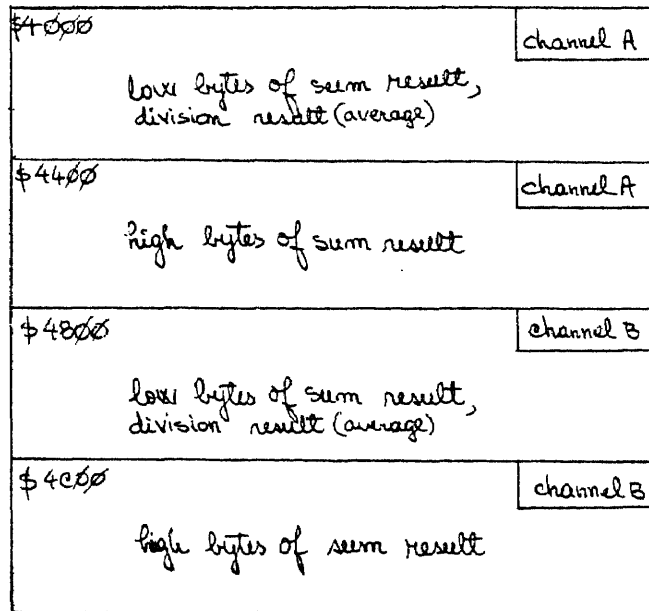 $4000
channel A
low bytes of sum result,
division result (average)
$4400
channel A
high bytes of sum result
$4800
channel B
low bytes of sum result,
division result (average)
$4C00
channel B
high bytes of sum result